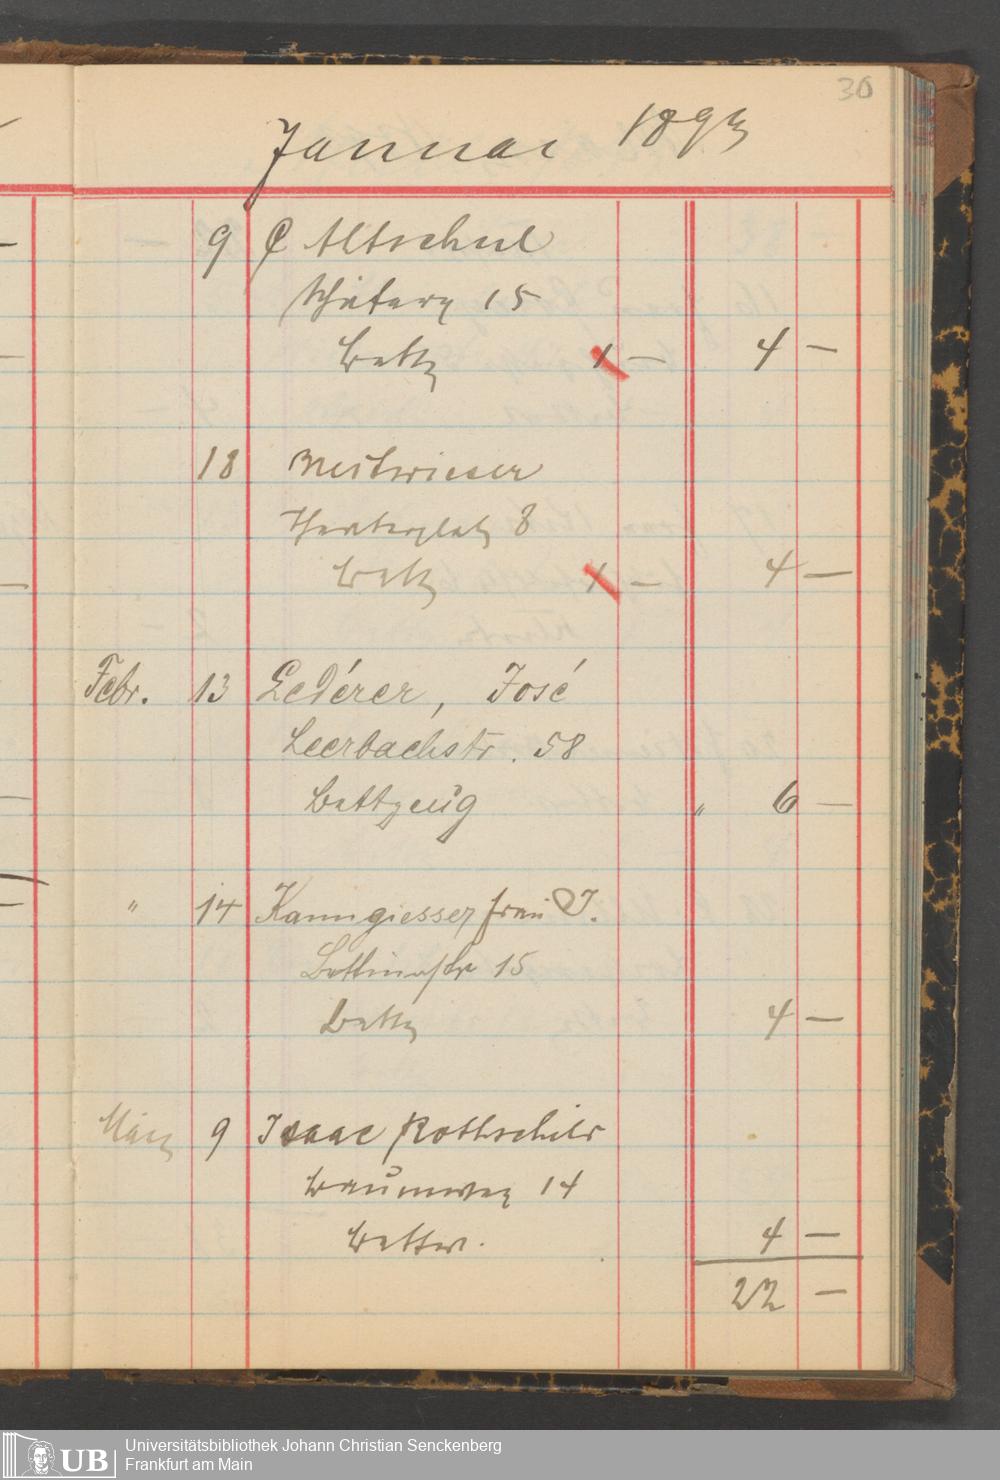 30
Januar 1893
9 C Altschul
15
Bettz 1 — 4 —
18
Theaterplatz 8
Bettz 1 — 4 —
Febr. 13 Lederer, José
Leerbachstr. 58
Bettzeug " 6 —
" 14 Kanngiesser Frau J.
Bettinastr 15
Bettz 4 —
März 9 Isaac Rothschild
Baumweg 14
Bettw. 4 —
22 —
UB
Universitätsbibliothek Johann Christian Senckenberg
Frankfurt am Main